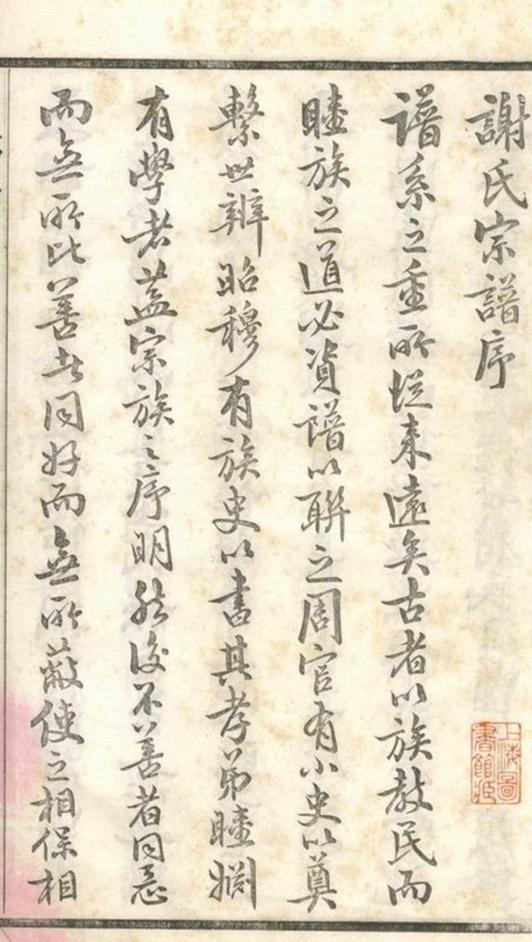 謝氏宗譜序
譜系之重所從來遠矣古者以族教民而
睦族之道必資譜以聯之周官有小史以奠
繫世辨昭穆有族史以書其孝弟睦婣
有學者蓋宗族之序明然後不善者同惡
而無所比善者同好而無所蔽使之相保相
上海圖書館藏